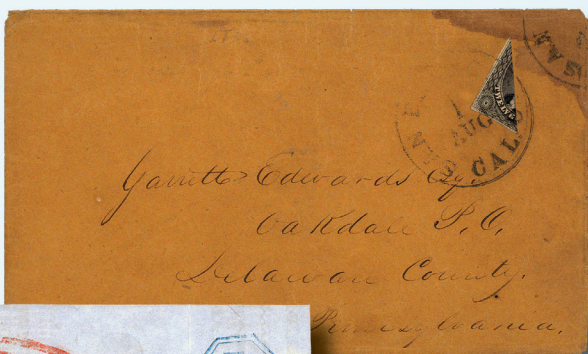 SAN
1
AUG
CAL.
TWELVE
Garrett Edwards Esq.
Oakdale P.O.
Delaware County.
Pennsylvania.